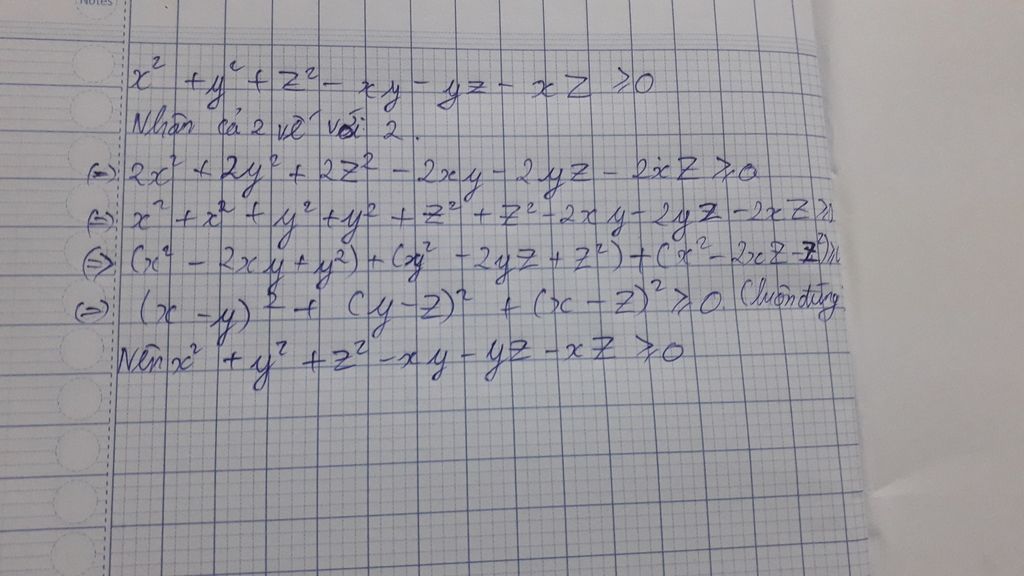 Notes
x² + y² + z² - xy - yz - xz ≥ 0
Nhân cả 2 vế với 2.
(=) 2x² + 2y² + 2z² - 2xy - 2yz - 2xz ≥ 0
(=) x² + x² + y² + y² + z² + z² - 2xy - 2yz - 2xz ≥
(=) (x² - 2xy + y²) + (y² - 2yz + z²) + (x² - 2xz - z²) ≥
(=) (x - y)² + (y - z)² + (x - z)² ≥ 0. (luôn đúng
Nên x² + y² + z² - xy - yz - xz ≥ 0